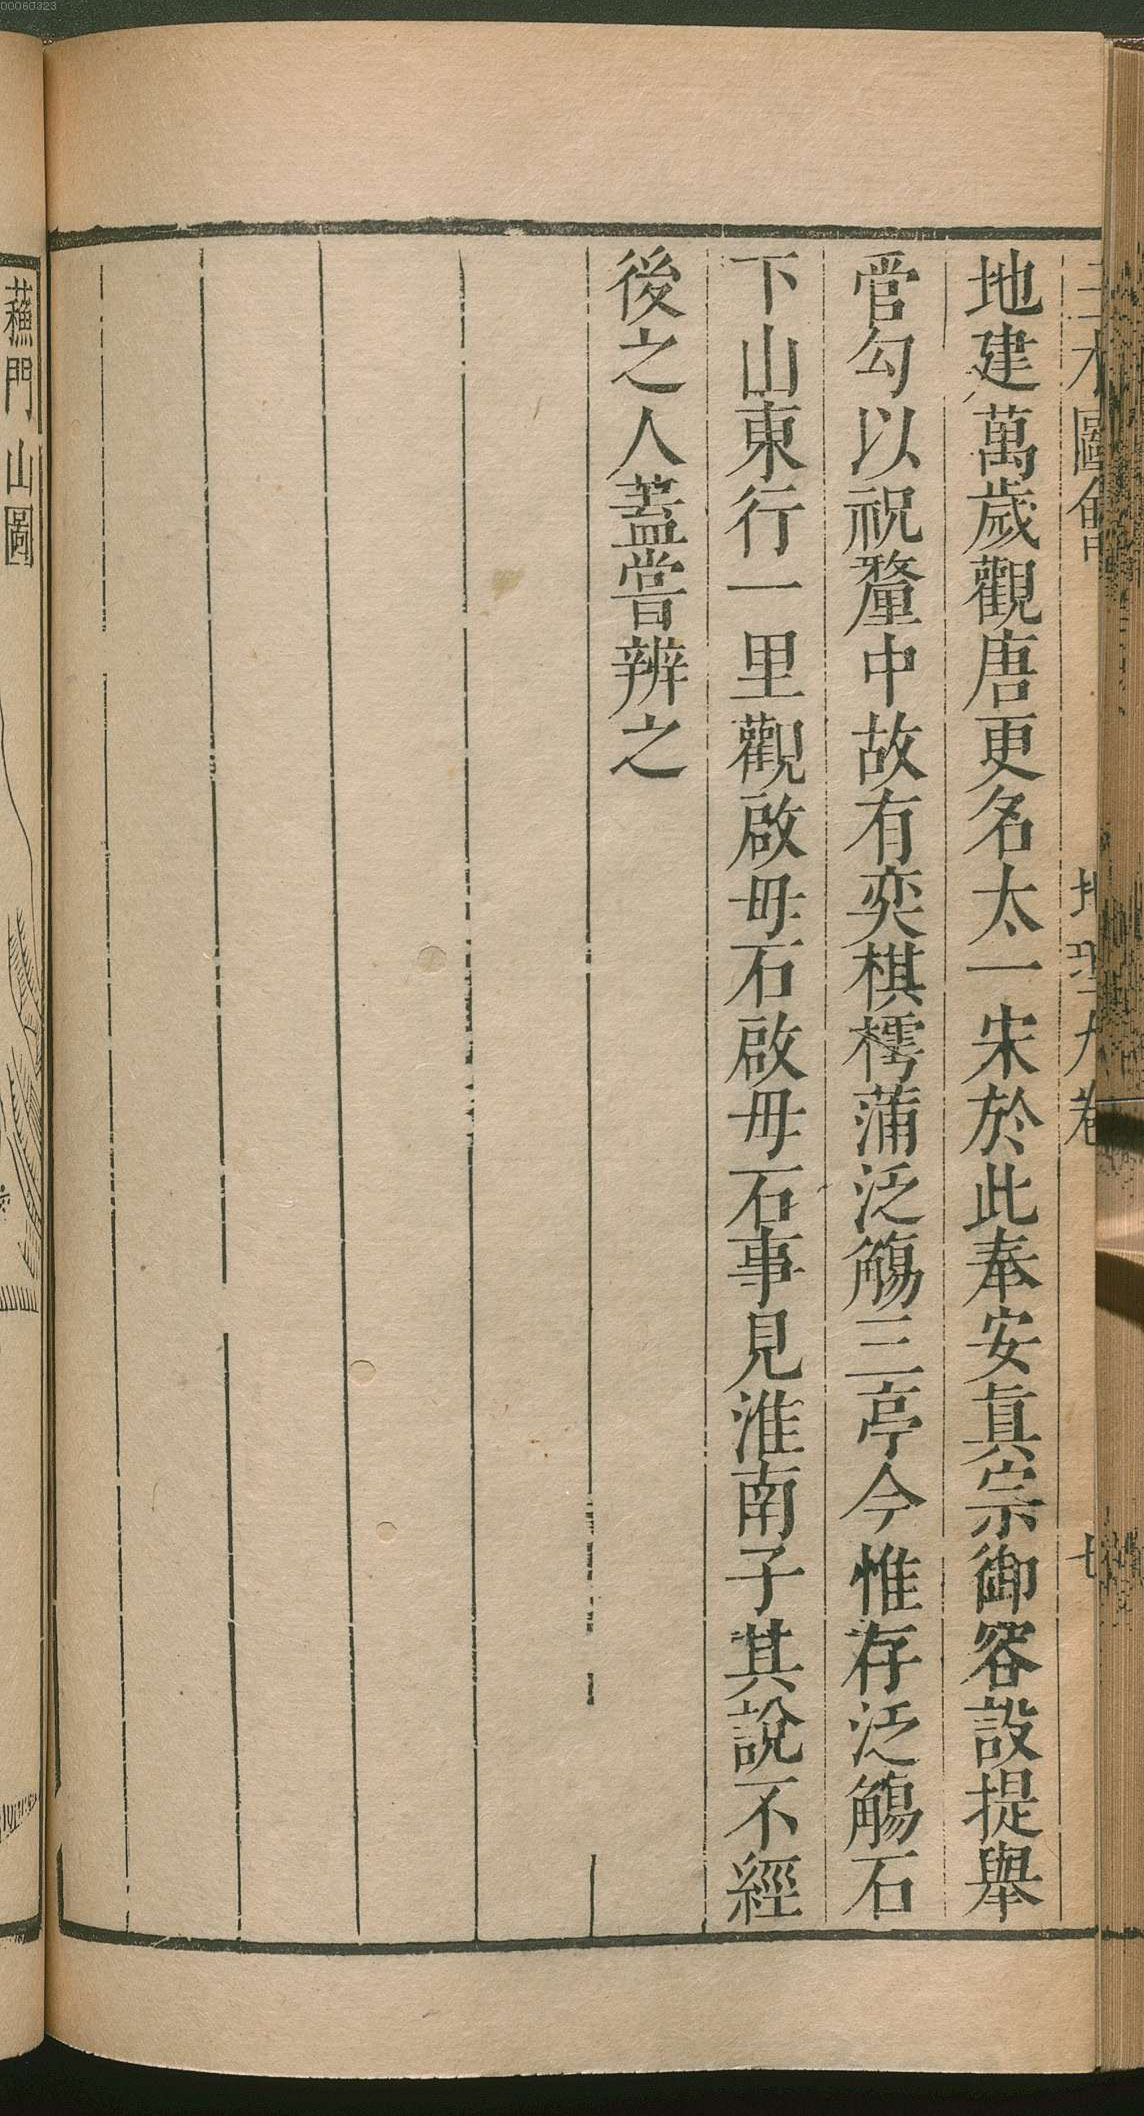 00060323
三才圖會 地理九卷 七
地建萬歲觀唐更名太一宋於此奉安真宗御容設提舉
管勾以祝釐中故有奕棋樗蒲泛觴三亭今惟存泛觴石
下山東行一里觀啟母石啟母石事見淮南子其說不經
後之人蓋嘗辨之
蘓門山圖